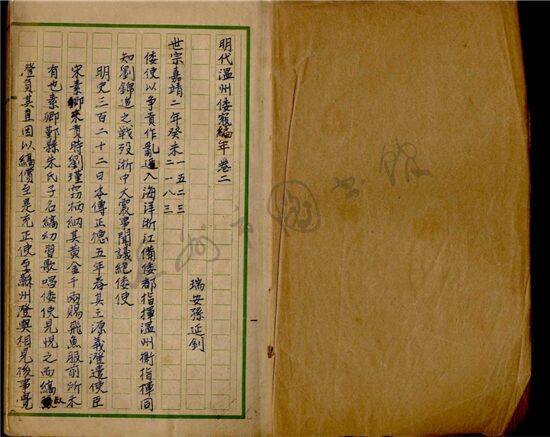 明代溫州倭寇編年卷二
瑞安孫延釗
世宗嘉靖二年癸未 一五二三 二一八三
倭使以爭貢作亂遁入海洋浙江備倭都指揮溫州衛指揮同
知劉錦追之戰歿浙中大震事聞議絕倭使
明史三百二十二日本傳正德五年春其王源義澄遣使臣
宋素卿來貢時劉瑾竊柄納其黃金千兩賜飛魚服前所未
有也素卿鄞縣朱氏子名縞幼習歌唱倭使見悅之而縞叔
澄負其直因以縞償至是充正使至蘇州澄與相見後事覺